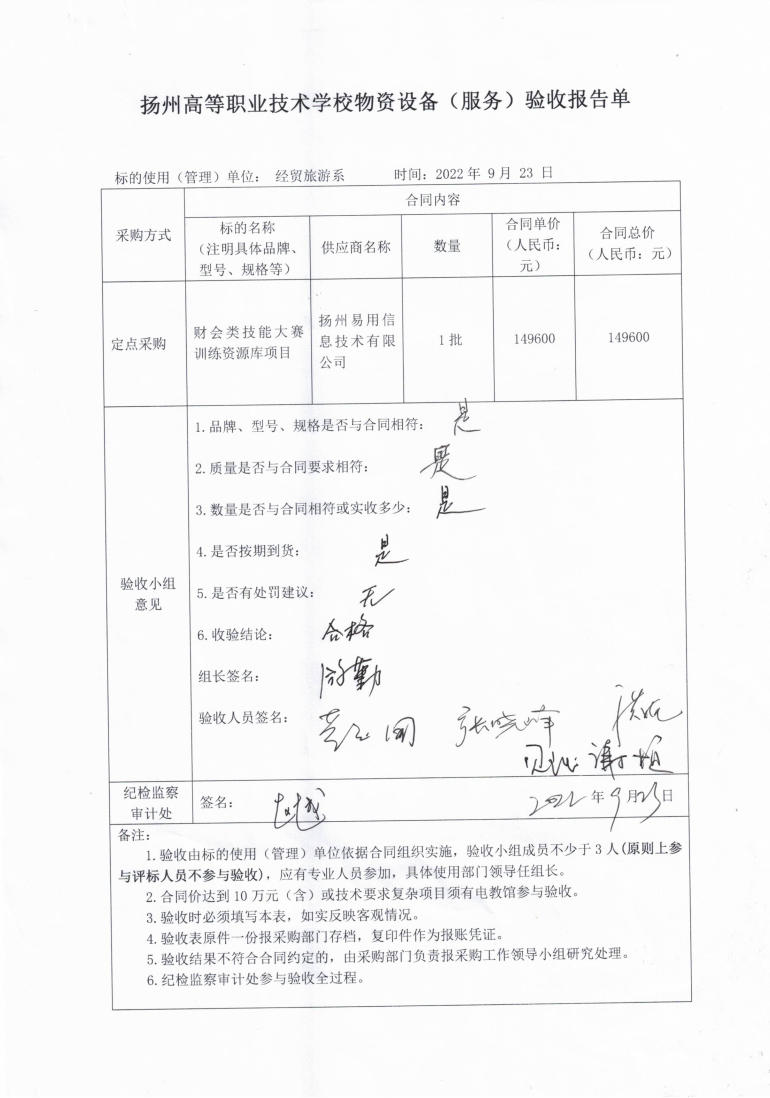 扬州高等职业技术学校物资设备（服务）验收报告单
标的使用（管理）单位： 经贸旅游系 时间：2022 年 9 月 23 日
采购方式
合同内容
标的名称
（注明具体品牌、
型号、规格等）
供应商名称
数量
合同单价
（人民币：
元）
合同总价
（人民币：元）
定点采购
财会类技能大赛
训练资源库项目
扬州易用信
息技术有限
公司
1 批
149600
149600
验收小组
意见
1.品牌、型号、规格是否与合同相符： 是
2.质量是否与合同要求相符： 是
3.数量是否与合同相符或实收多少： 是
4.是否按期到货： 是
5.是否有处罚建议： 无
6.收验结论： 合格
组长签名：
验收人员签名： 张晓峰
纪检监察
审计处
签名： 2022 年 9 月 23 日
备注：
1.验收由标的使用（管理）单位依据合同组织实施，验收小组成员不少于 3 人(原则上参
与评标人员不参与验收)，应有专业人员参加，具体使用部门领导任组长。
2.合同价达到 10 万元（含）或技术要求复杂项目须有电教馆参与验收。
3.验收时必须填写本表，如实反映客观情况。
4.验收表原件一份报采购部门存档，复印件作为报账凭证。
5.验收结果不符合合同约定的，由采购部门负责报采购工作领导小组研究处理。
6.纪检监察审计处参与验收全过程。